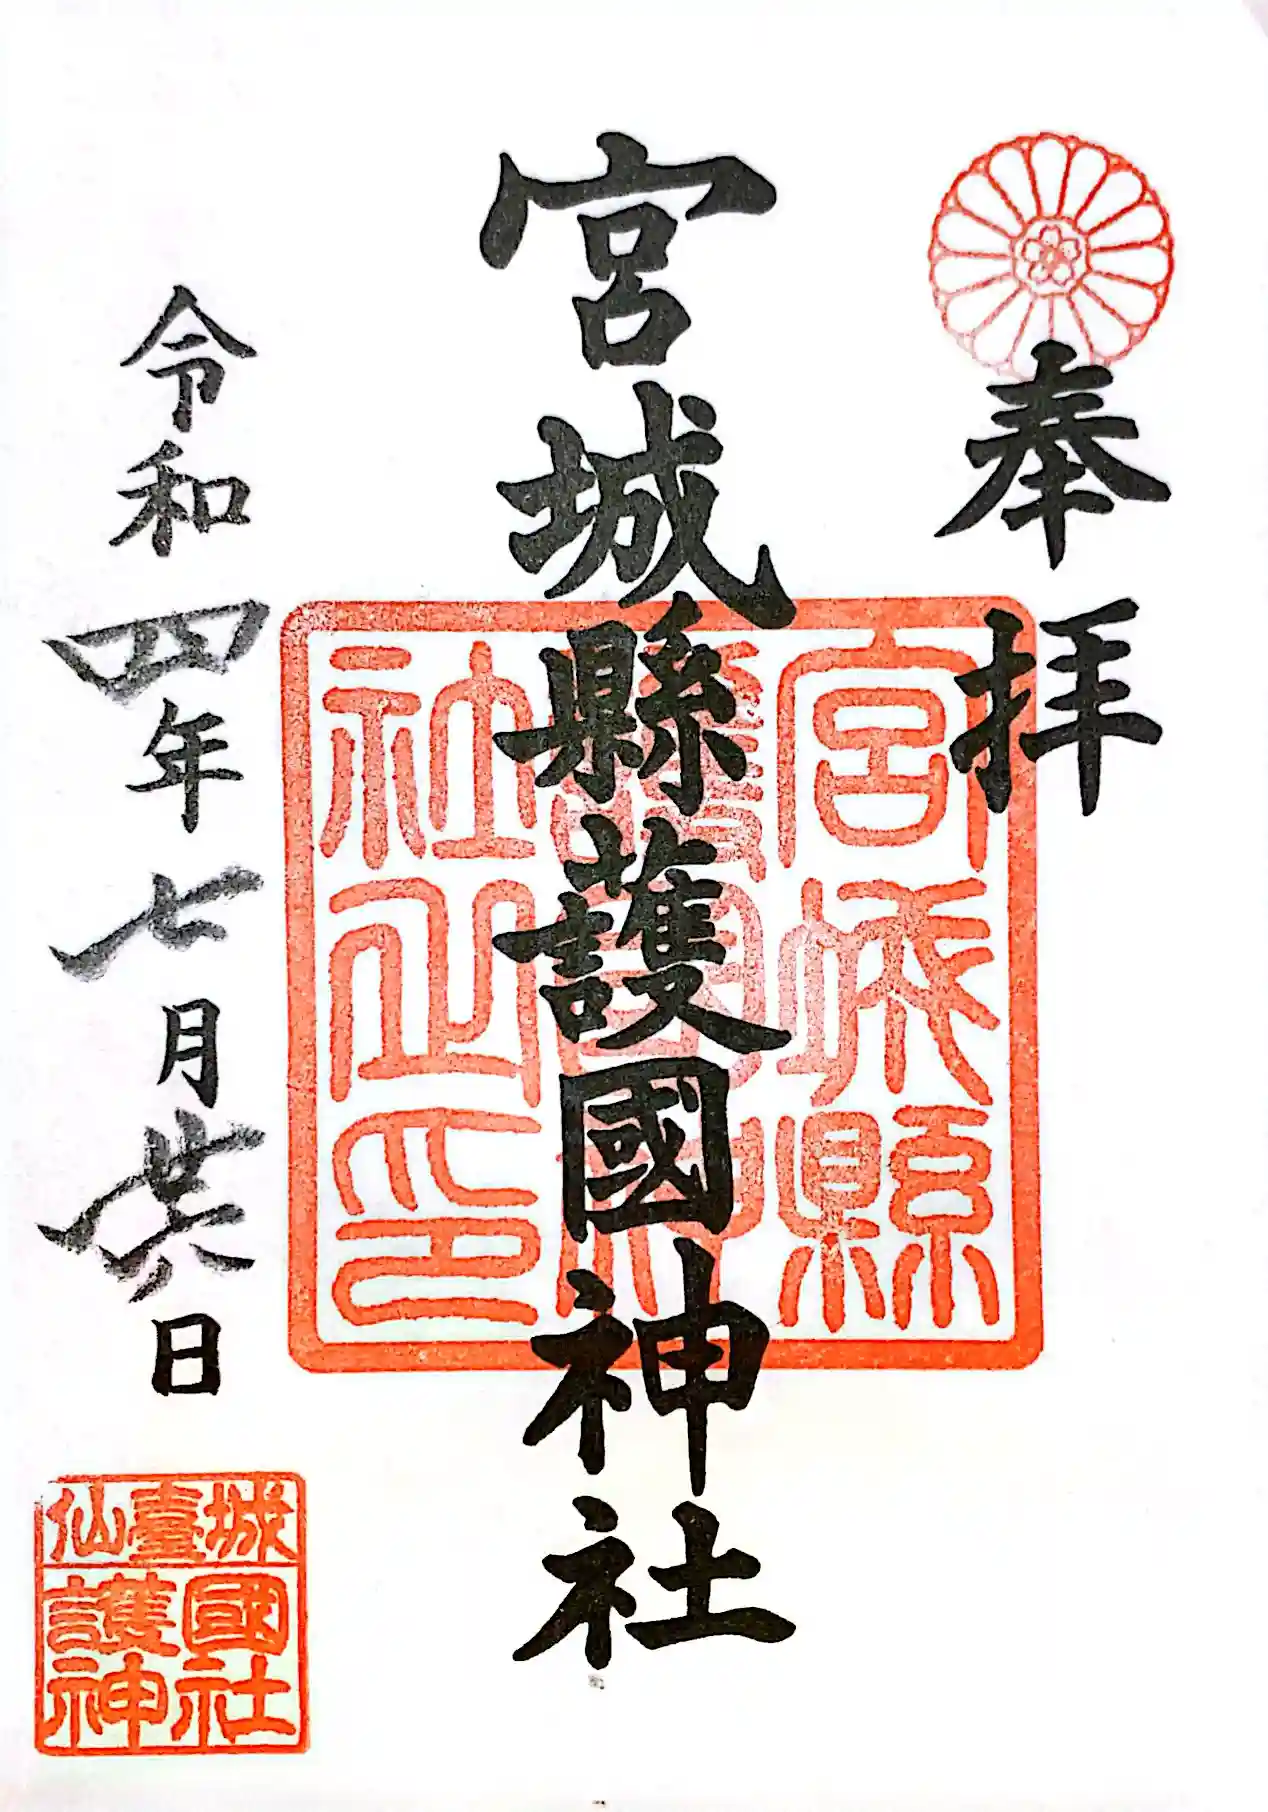 奉拝
宮城縣護國神社
宮城縣
護國神
社之印
令和四年七月廿六日
仙臺城
護國
神社